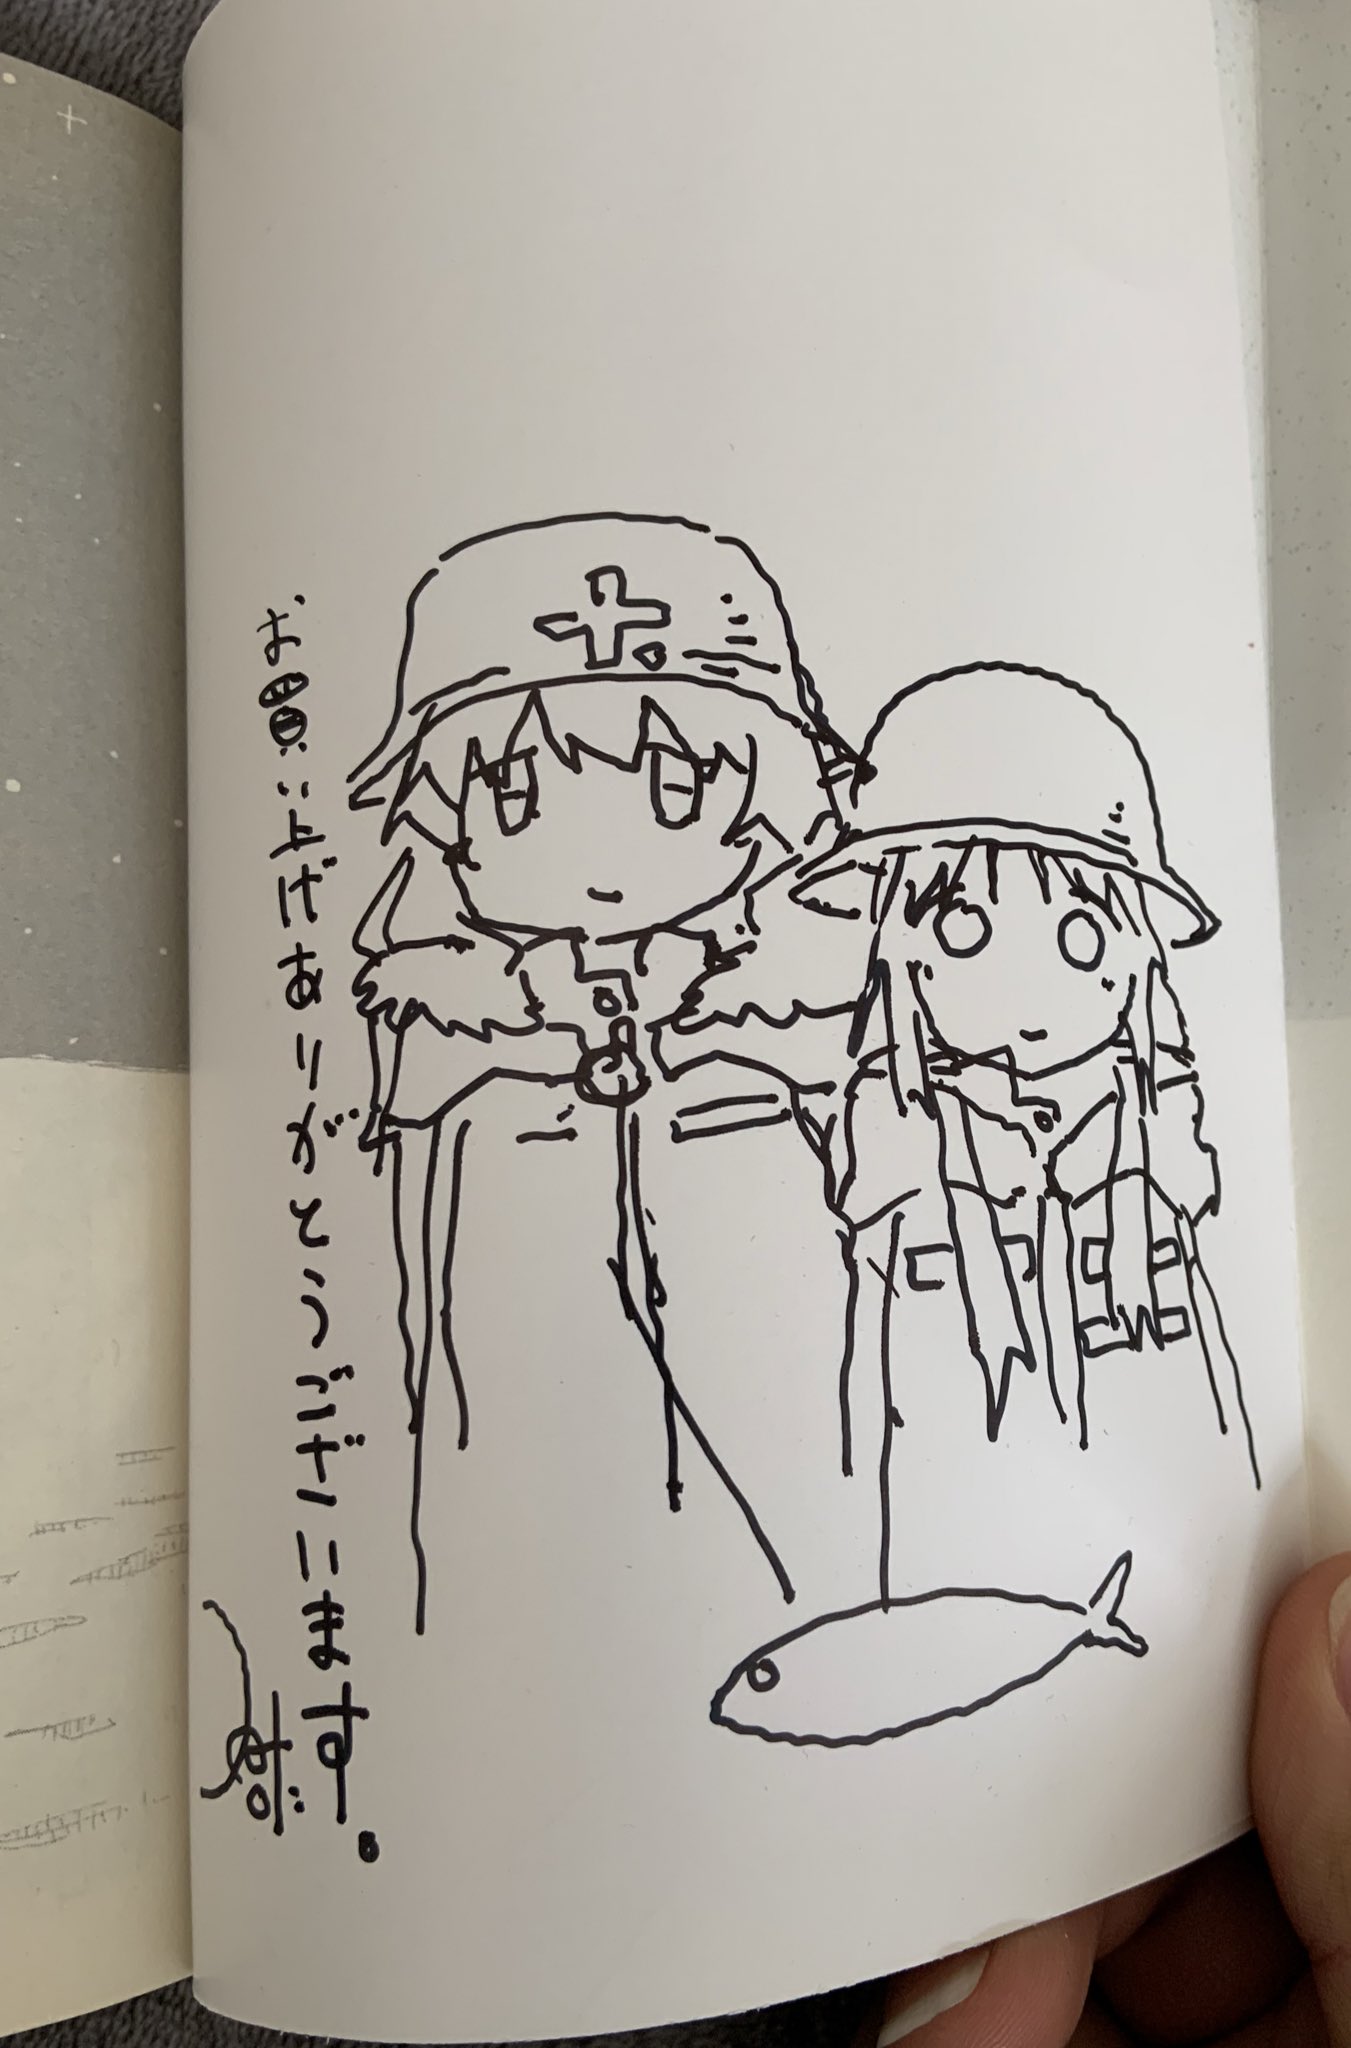 お買い上げありがとうございます。